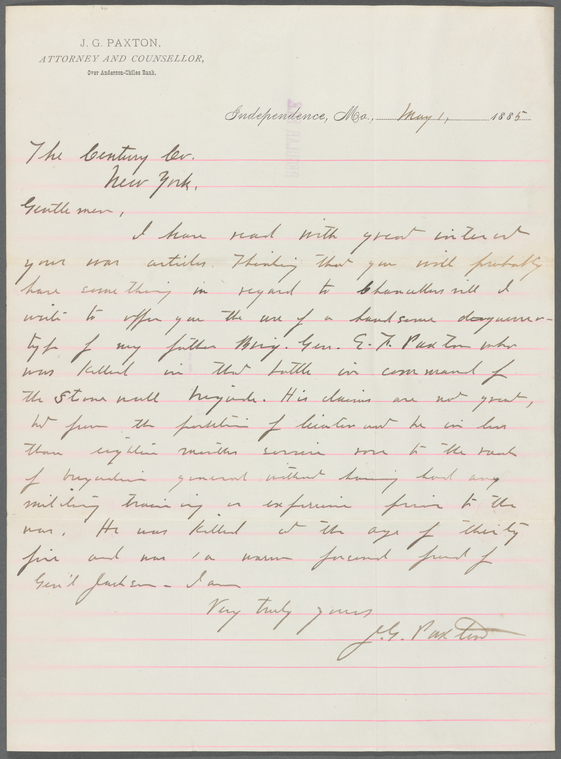 J. G. PAXTON,
ATTORNEY AND COUNSELLOR,
Over Anderson-Chiles Bank.
Independence, Mo., May 1, 1885
The Century Co.
New York.
Gentlemen,
I have read with great interest
your war articles. Thinking that you will probably
have something in regard to Chancellorsville I
write to offer you the use of a handsome daguerreo-
type of my father Brig. Gen. E. F. Paxton who
was killed in that battle in command of
the Stonewall brigade. His claims are not great,
but from the position of lieutenant he in less
than eighteen months service rose to the rank
of brigadier general without having had any
military training or experience prior to the
war. He was killed at the age of thirty
five and was a warm personal friend of
Gen'l Jackson - I am
Very truly yours
J. G. Paxton